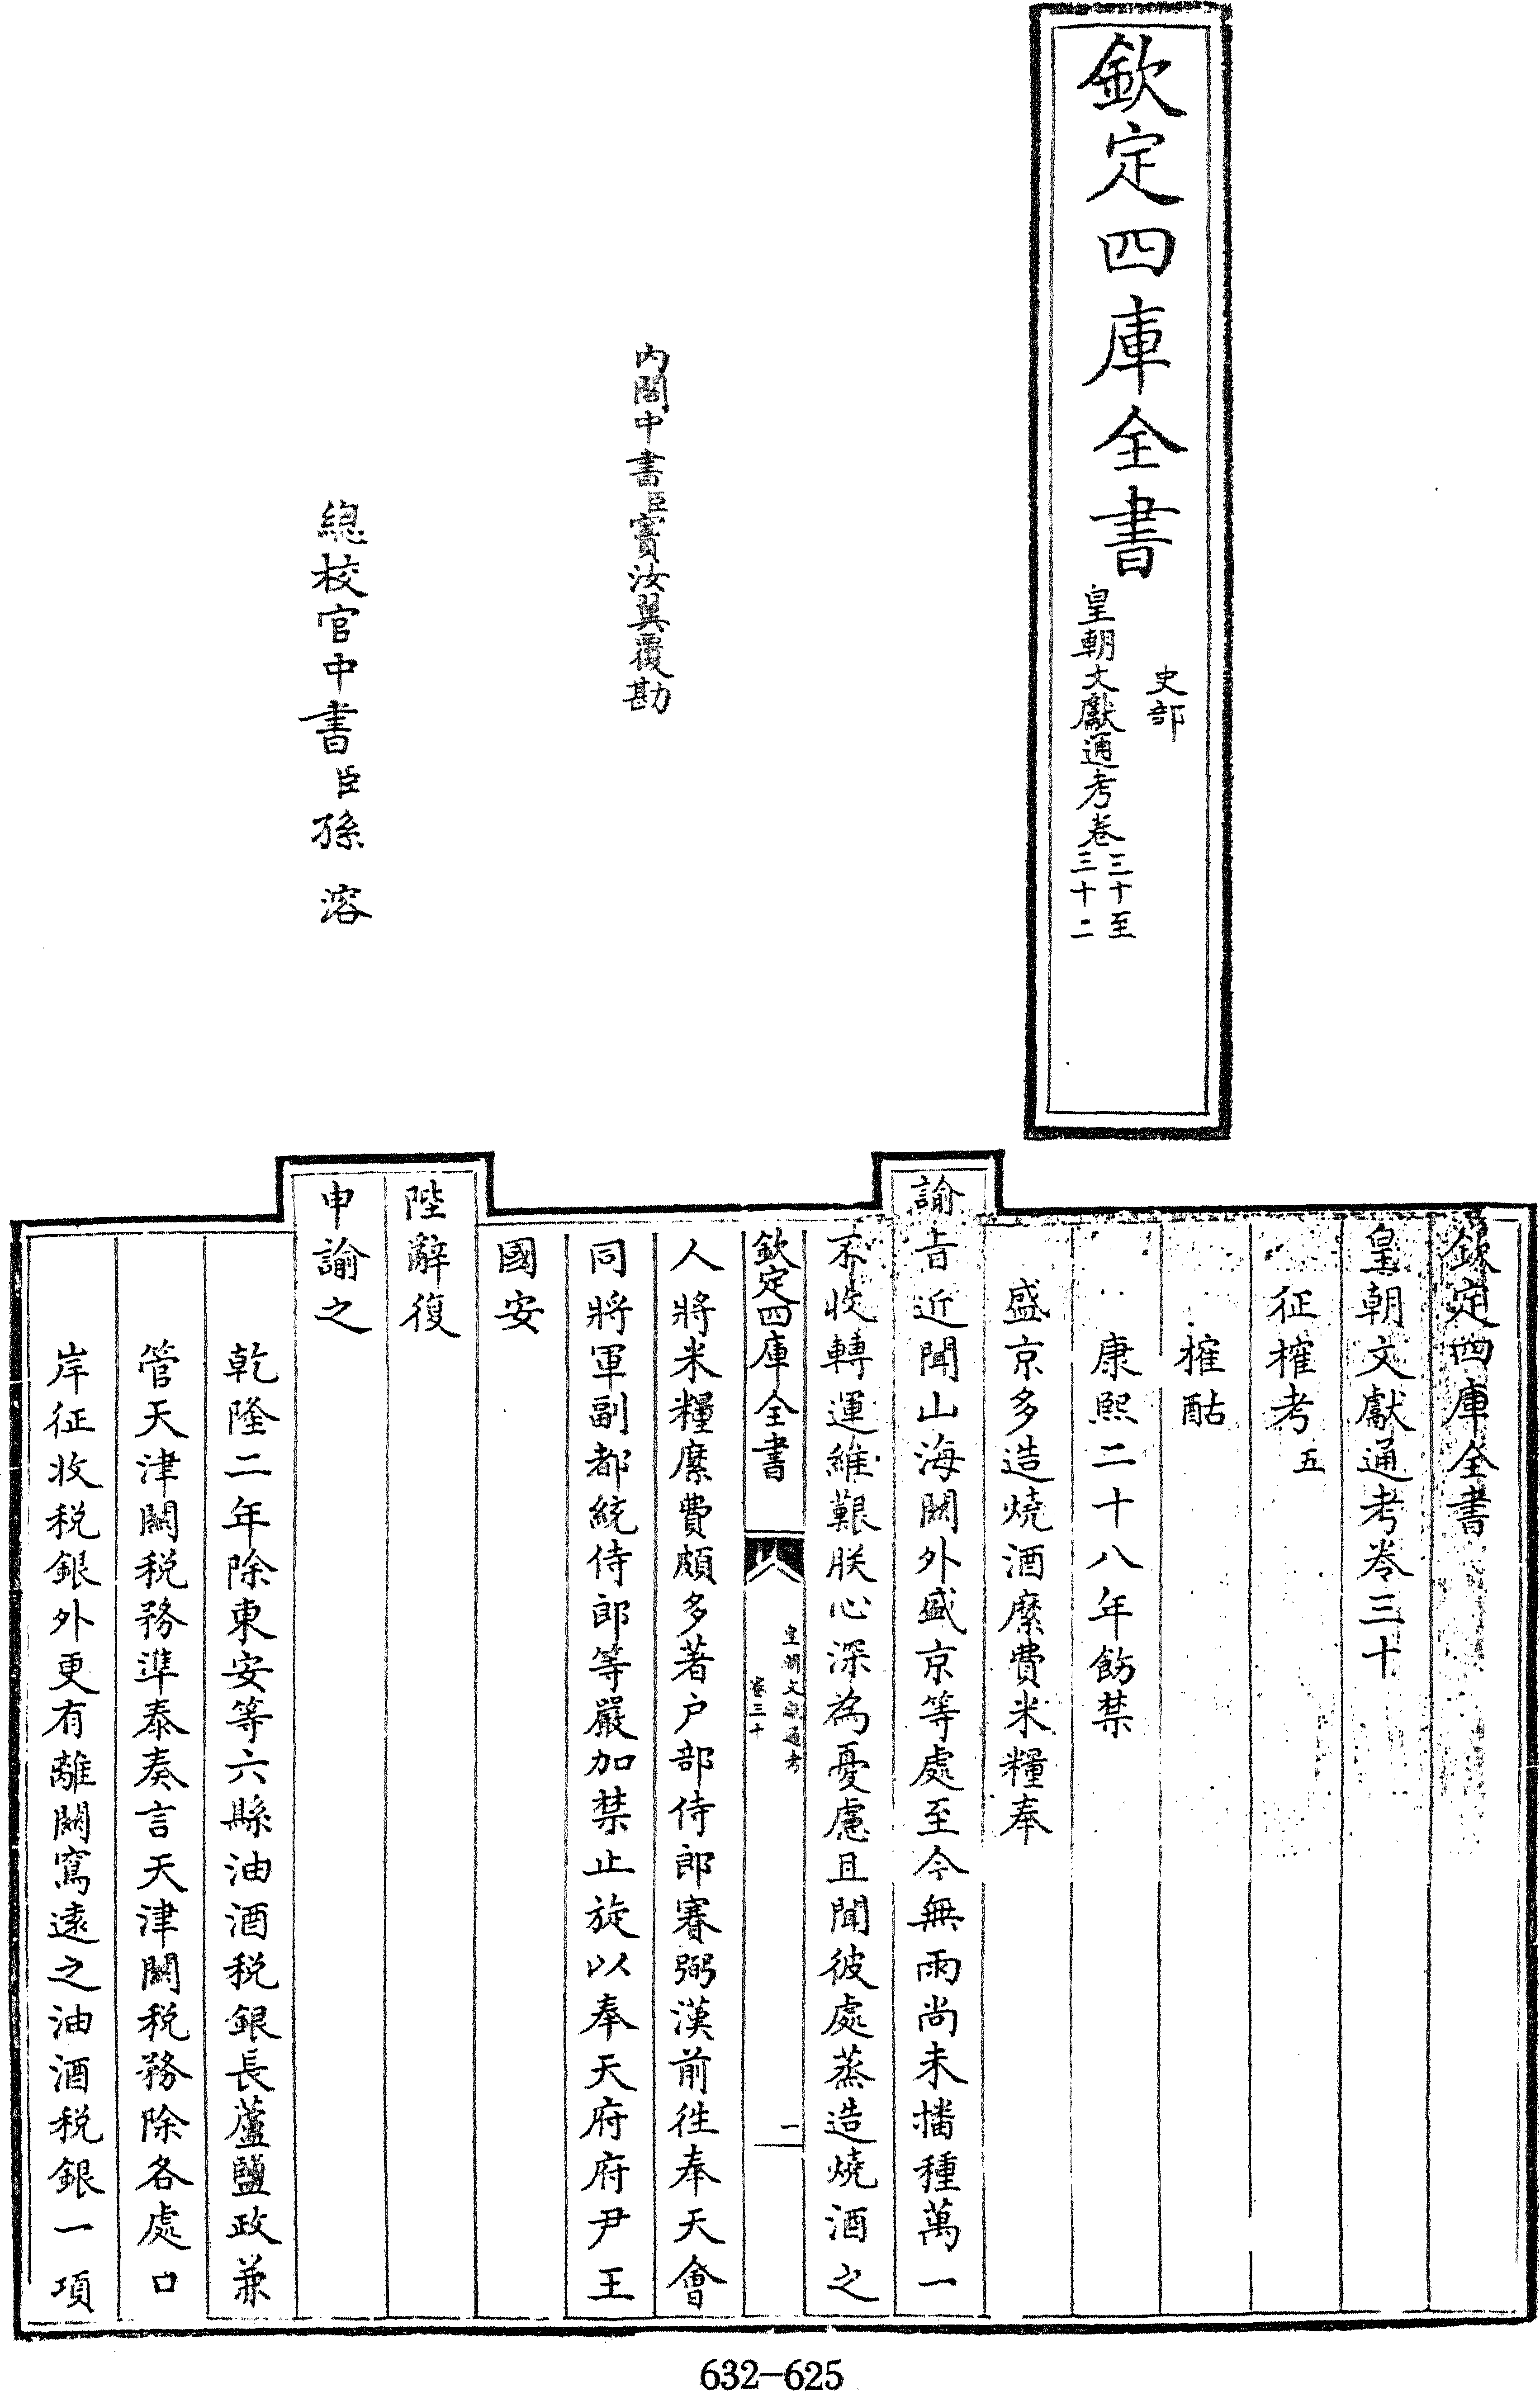 欽定四庫全書
史部
皇朝文獻通考卷三十至三十二
内閣中書臣竇汝翼覆勘
總校官中書臣孫溶
欽定四庫全書
皇朝文獻通考卷三十
征榷考五
榷酤
康熙二十八年飭禁
盛京多造燒酒糜費米糧奉
諭旨近聞山海關外盛京等處至今無雨尚未播種萬一
不收轉運維艱朕心深為憂慮且聞彼處蒸造燒酒之
欽定四庫全書
皇朝文獻通考
卷三十
一
人將米糧糜費頗多著户部侍郎賽弼漢前徃奉天會
同將軍副都統侍郎等嚴加禁止旋以奉天府府尹王
國安
陛辭復
申諭之
乾隆二年除東安等六縣油酒税銀長蘆鹽政兼
管天津關税務準泰奏言天津關税務除各處口
岸征收税銀外更有離關窵遠之油酒税銀一項
632-625